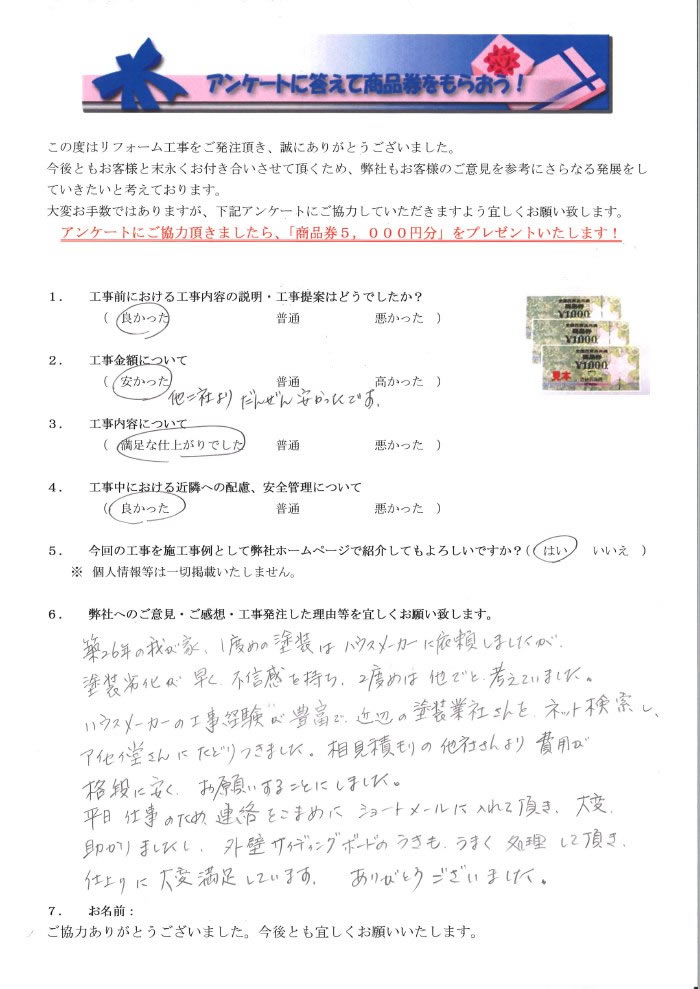 アンケートに答えて商品券をもらおう！
この度はリフォーム工事をご発注頂き、誠にありがとうございました。
今後ともお客様と末永くお付き合いさせて頂くため、弊社もお客様のご意見を参考にさらなる発展をし
ていきたいと考えております。
大変お手数ではありますが、下記アンケートにご協力していただきますよう宜しくお願い致します。
アンケートにご協力頂きましたら、「商品券５，０００円分」をプレゼントいたします！
１．　工事前における工事内容の説明・工事提案はどうでしたか？
（　良かった　普通　悪かった　）
¥1000
¥1000
¥1000
見本
２．　工事金額について
（　安かった　普通　高かった　）
他二社より だんぜん 安かったです。
３．　工事内容について
（　満足な仕上がりでした　普通　悪かった　）
４．　工事中における近隣への配慮、安全管理について
（　良かった　普通　悪かった　）
５．　今回の工事を施工事例として弊社ホームページで紹介してもよろしいですか？（　はい　いいえ　）
※　個人情報等は一切掲載いたしません。
６．　弊社へのご意見・ご感想・工事発注した理由等を宜しくお願い致します。
築26年の我が家、1度めの塗装は ハウスメーカーに依頼しましたが、
塗装劣化が 早く、不信感を持ち、2度めは 他でと 考えていました。
ハウスメーカーの工事経験が 豊富で、近辺の塗装業社さんを、ネット検索し、
アイセイ堂さんに たどりつきました。相見積もりの他社さんより 費用が
格段に安く、お願いすることにしました。
平日 仕事のため、連絡をこまめに ショートメールに入れて頂き、大変、
助かりましたし、外壁サイディングボードのうきも、うまく 処理 して頂き、
仕上りに 大変満足しています。ありがとうございました。
７．　お名前：
ご協力ありがとうございました。今後とも宜しくお願いいたします。